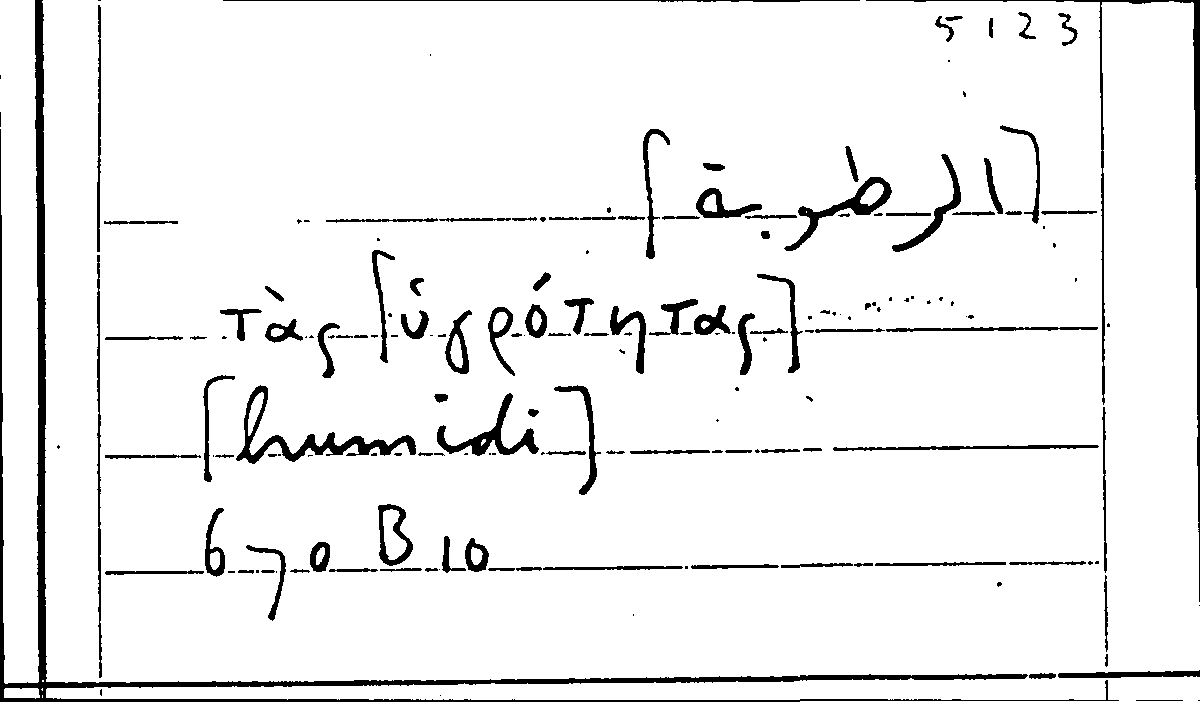 5123
[الرطوبة]
τὰς [ὑγρότητας]
[humidi]
670 B 10